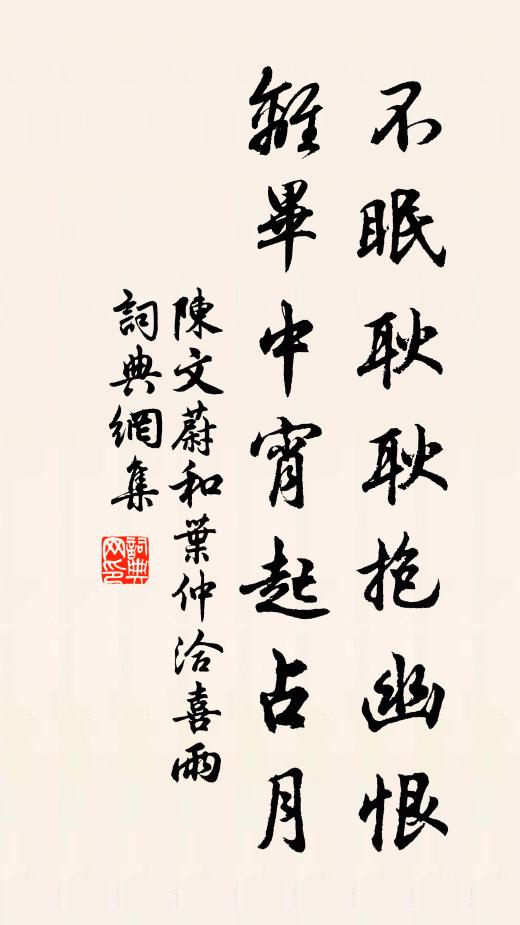 不眠耿耿抱幽恨
離畢中宵起占月
陳文蔚和葉仲洽喜雨
詞典網集
詞典網印